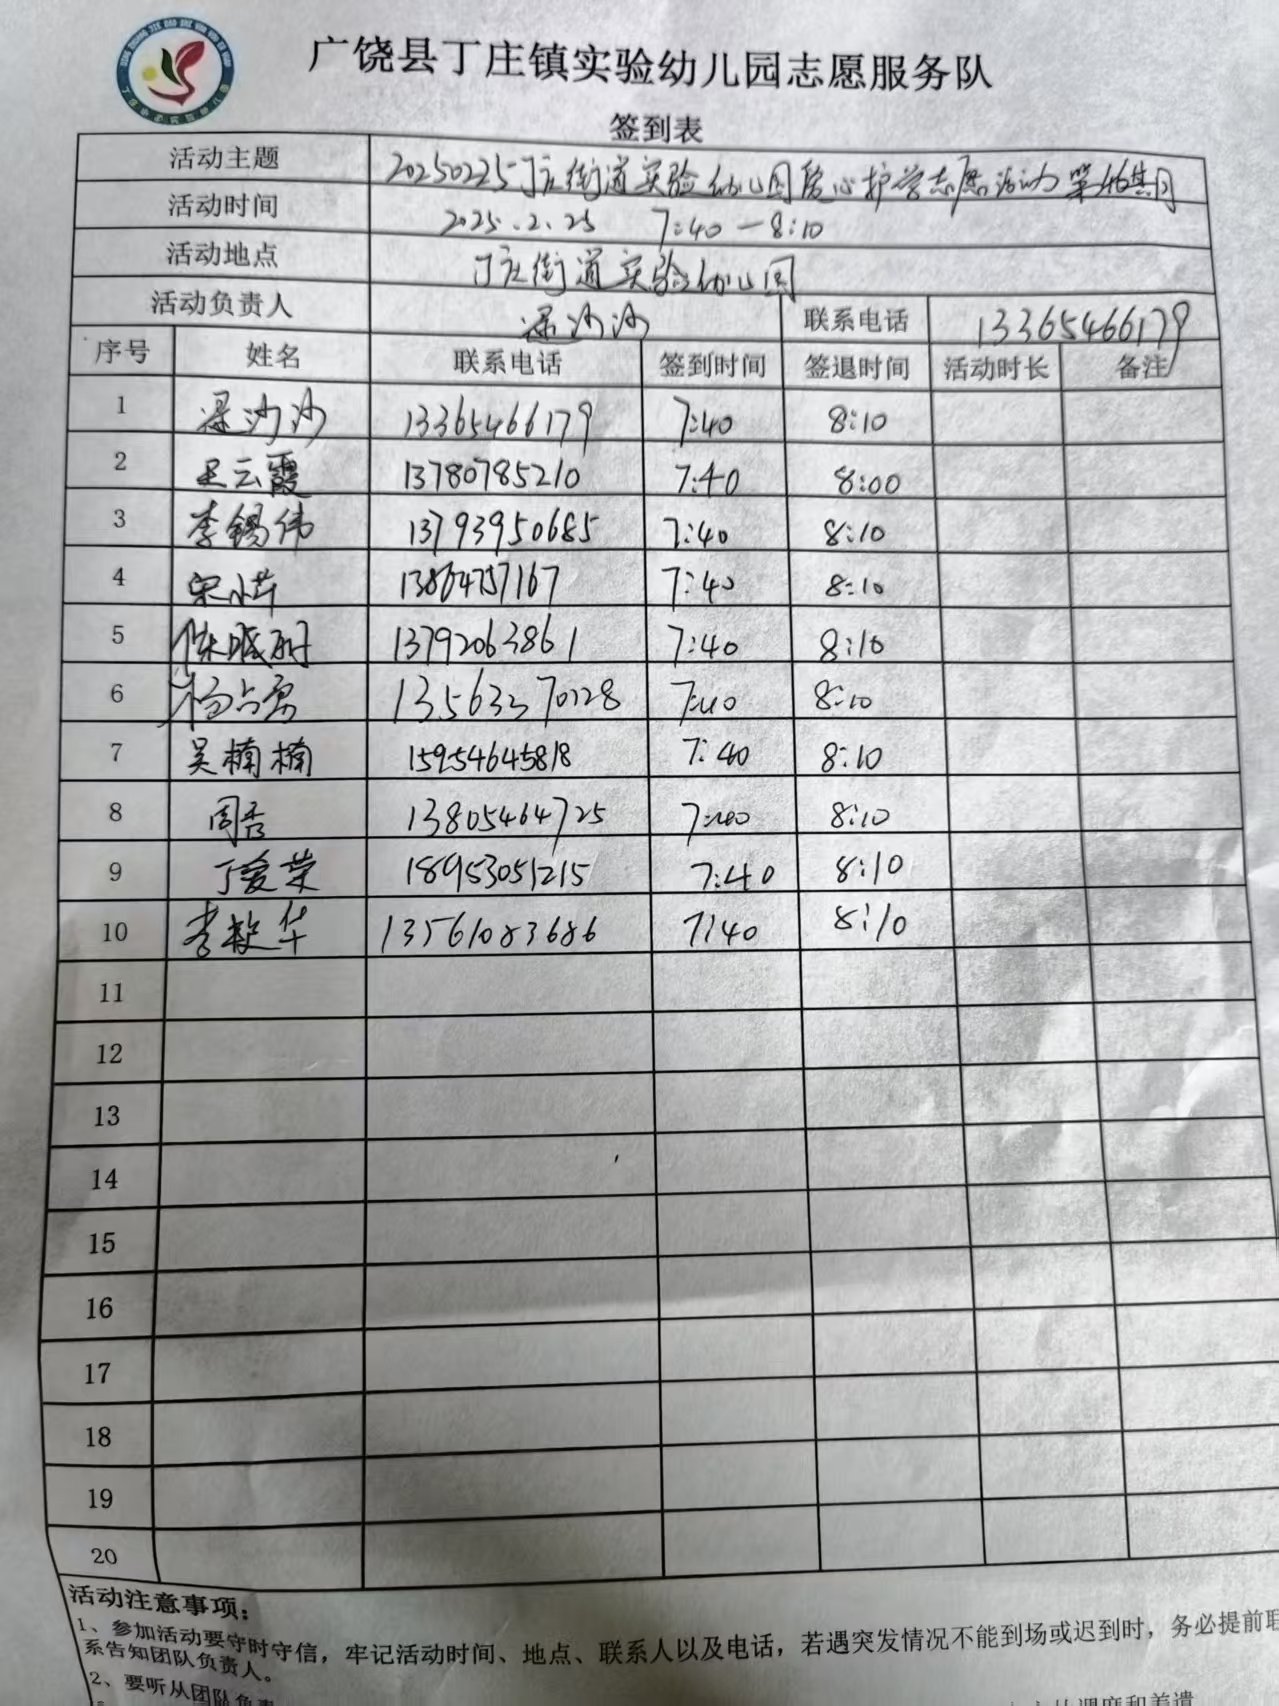 广饶县丁庄镇实验幼儿园志愿服务队
签到表
活动主题 20250225丁庄街道实验幼儿园爱心护学志愿活动 第
活动时间 2025.2.25 7:40—8:10
活动地点 丁庄街道实验幼儿园
活动负责人 梁沙沙 联系电话 13365466179
序号 姓名 联系电话 签到时间 签退时间 活动时长 备注
1 梁沙沙 13365466179 7:40 8:10
2 王云霞 13780785210 7:40 8:00
3 李锡伟 13793950685 7:40 8:10
4 宋小芹 13864757167 7:40 8:10
5 13792063861 7:40 8:10
6 杨占勇 7:40 8:10
7 吴楠楠 15954645818 7:40 8:10
8 周香 13805464725 7:40 8:10
9 丁爱荣 18953051215 7:40 8:10
10 李 华 13561083686 7:40 8:10
11
12
13
14
15
16
17
18
19
20
活动注意事项：
1、参加活动要守时守信，牢记活动时间、地点、联系人以及电话，若遇突发情况不能到场或迟到时，务必提前联
系告知团队负责人。
2、要听从团队负责